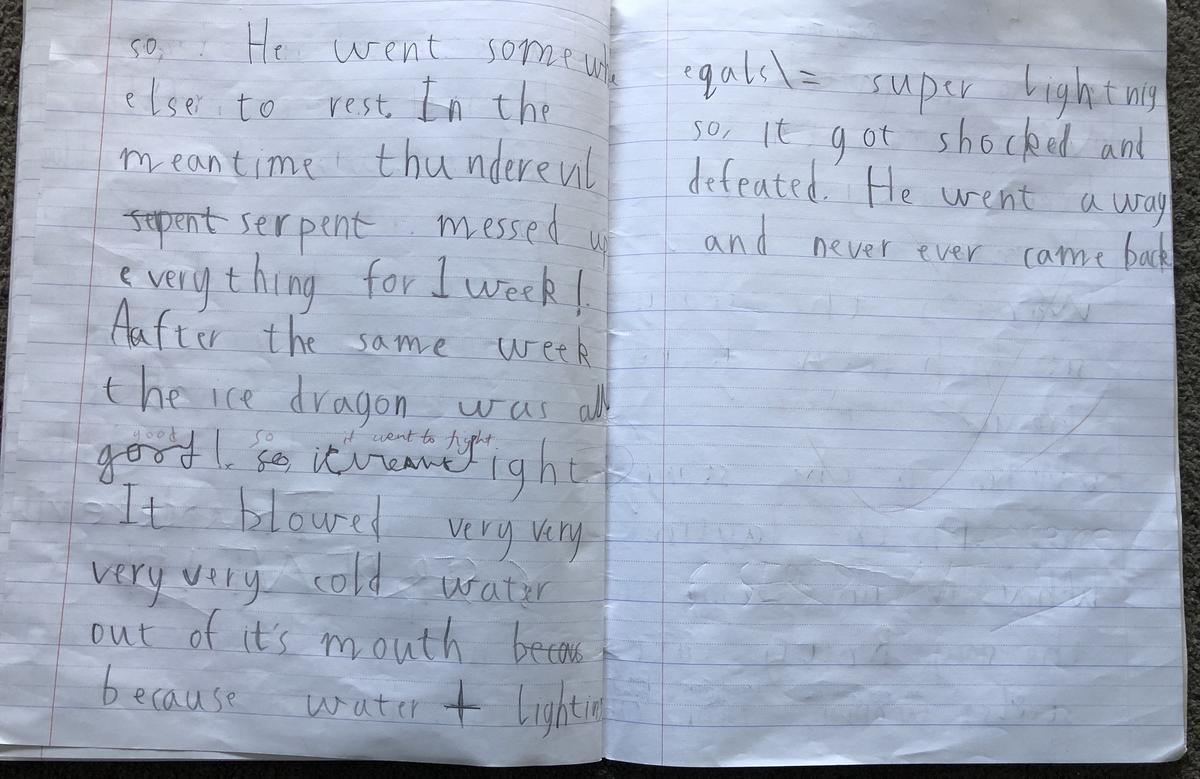 so, He went somewhe
else to rest. In the
meantime thunderevil
sepent serpent messed up
everything for 1 week!.
Aafter the same week
the ice dragon was all
good so it went to fight
good!. so, it went fight
It blowed very very
very very cold water
out of it's mouth becous
because water + lightin
eqals\= super lightnig
so, it got shocked and
defeated. He went away
and never ever came back